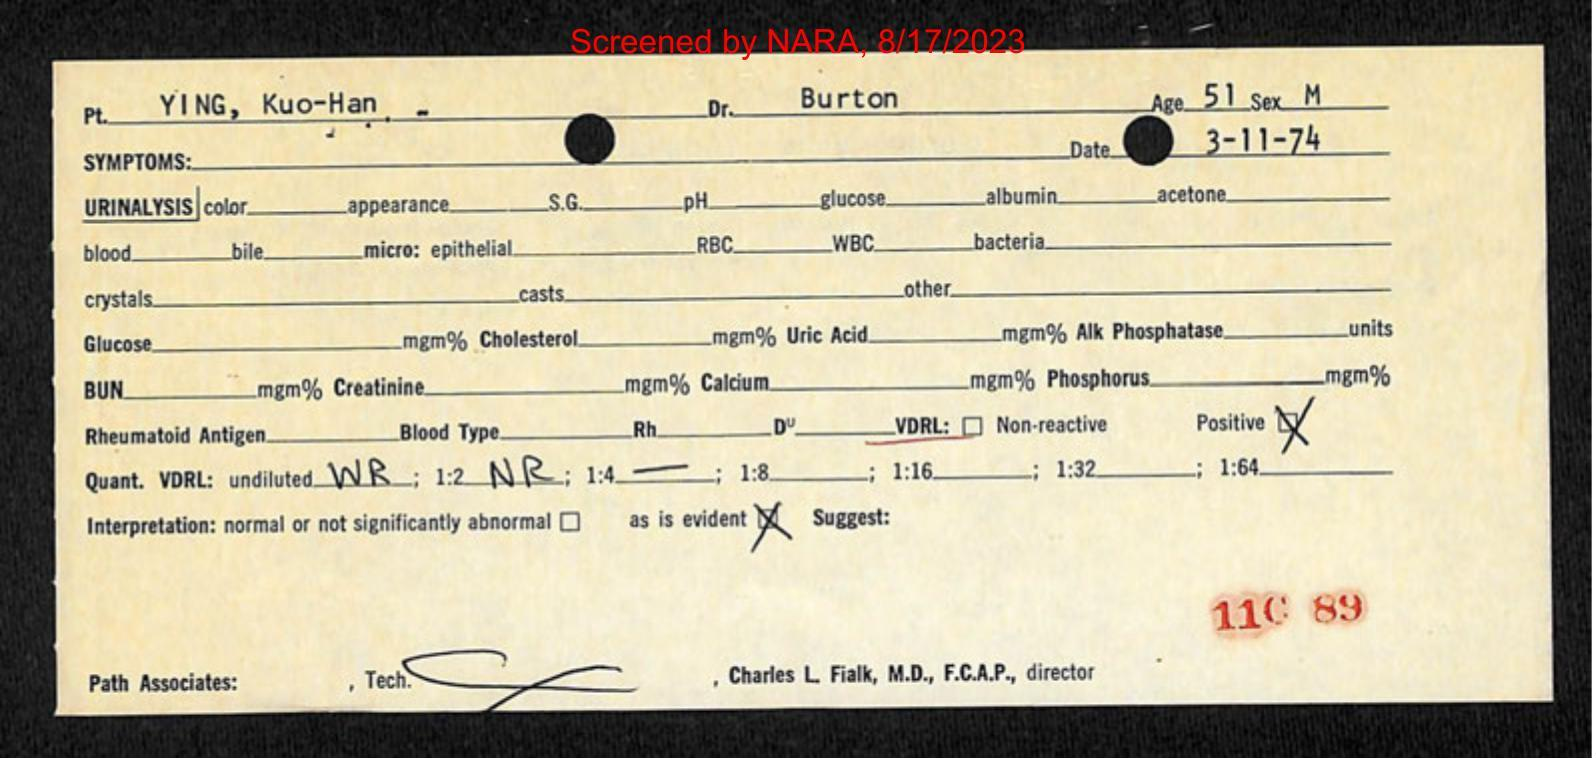 Screened by NARA, 8/17/2023
Pt. YING, Kuo-Han - Dr. Burton Age 51 Sex M
SYMPTOMS: Date 3-11-74
URINALYSIS color appearance S.G. pH glucose albumin acetone
blood bile micro: epithelial RBC WBC bacteria
crystals casts other
Glucose mgm% Cholesterol mgm% Uric Acid mgm% Alk Phosphatase units
BUN mgm% Creatinine mgm% Calcium mgm% Phosphorus mgm%
Rheumatoid Antigen Blood Type Rh Dᵁ VDRL: ☐ Non-reactive Positive ☒
Quant. VDRL: undiluted WR ; 1:2 NR ; 1:4 — ; 1:8 ; 1:16 ; 1:32 ; 1:64
Interpretation: normal or not significantly abnormal ☐ as is evident ☒ Suggest:
11C 89
Path Associates: , Tech. , Charles L. Fialk, M.D., F.C.A.P., director